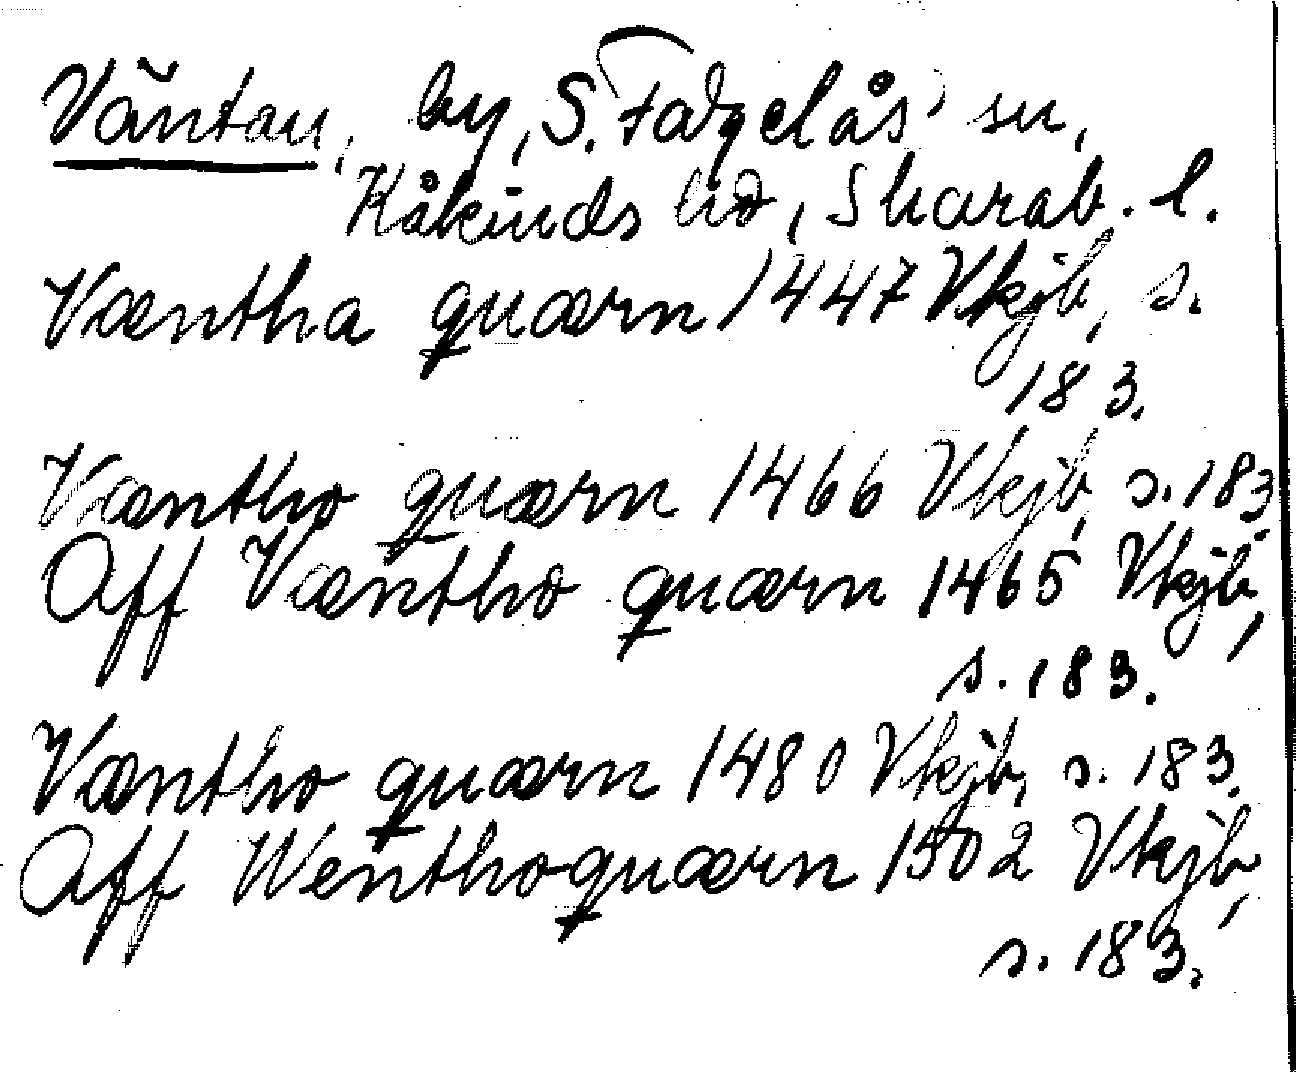 Väntan, by, S. Fågelås sn,
Kåkinds hd, Skarab. l.
Væntha quærn 1447 Vkjb, s.
183.
Væntho quærn 1466 Vkjb, s. 183.
Aff Væntho quærn 1465 Vkjb,
s. 183.
Væntho quærn 1480 Vkjb, s. 183.
Aff Wenthoquærn 1502 Vkjb,
s. 183.